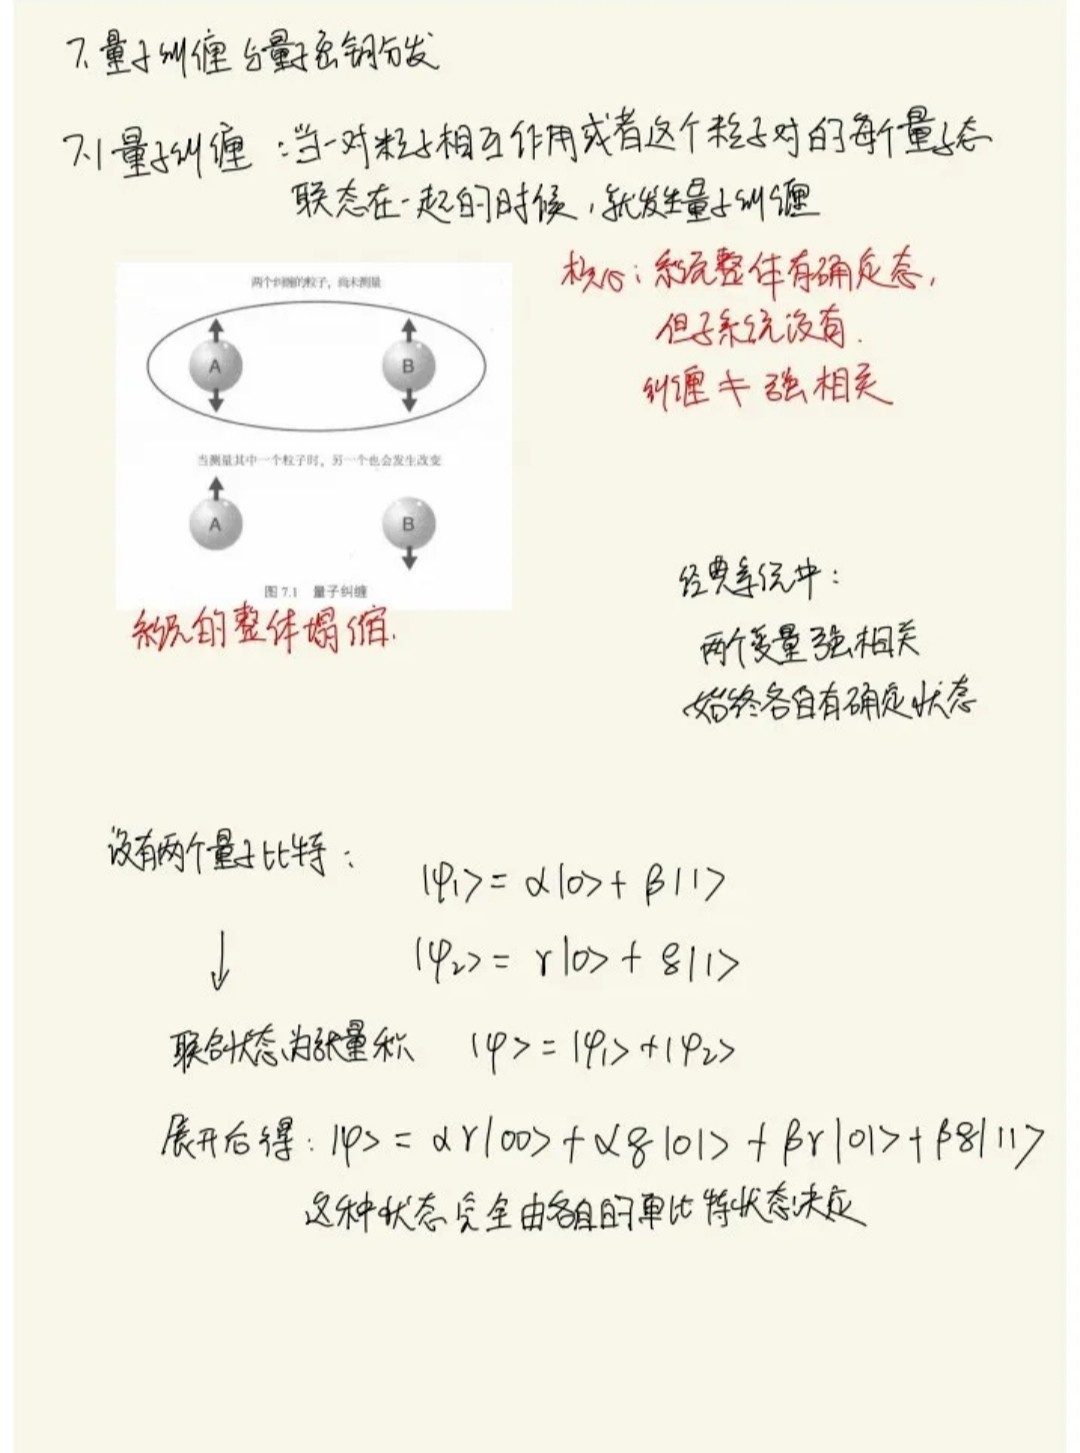 7. 量子纠缠与量子密钥分发
7.1 量子纠缠：当一对粒子相互作用或者这个粒子对的每个量子态
联态在一起的时候，就发生量子纠缠
核心：系统整体有确定态，
但子系统没有.
纠缠 ≠ 强相关
两个纠缠的粒子，尚未测量
A B
当测量其中一个粒子时，另一个也会发生改变
A B
图 7.1 量子纠缠
系统的整体塌缩.
经典系统中：
两个变量强相关
始终各自有确定状态
设有两个量子比特：
|φ₁> = α|0> + β|1>
|φ₂> = γ|0> + δ|1>
↓
联合状态为张量积 |φ> = |φ₁> + |φ₂>
展开后得：|φ> = αγ|00> + αδ|01> + βγ|01> + βδ|11>
这种状态完全由各自的单比特状态决定